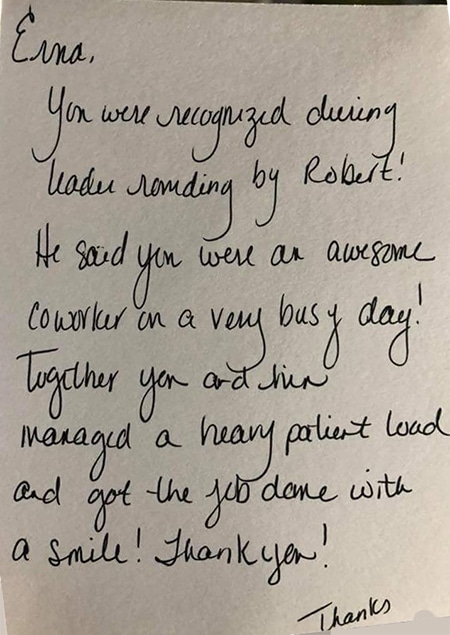 Erna,
You were recognized during
leader rounding by Robert!
He said you were an awesome
coworker on a very busy day!
Together you and him
managed a heavy patient load
and got the job done with
a smile! Thank you!
Thanks